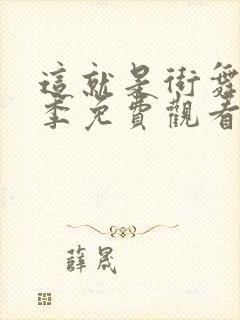 這就是街舞
季免費觀看
薛晟